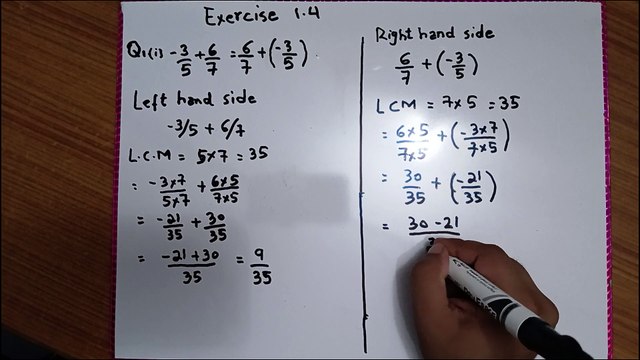 Exercise 1.4
Q1(i) -3/5 + 6/7 = 6/7 + (-3/5)
Left hand side
-3/5 + 6/7
L.C.M = 5x7 = 35
= -3x7/5x7 + 6x5/7x5
= -21/35 + 30/35
= -21+30/35 = 9/35
Right hand side
6/7 + (-3/5)
LCM = 7x5 = 35
= 6x5/7x5 + (-3x7/7x5)
= 30/35 + (-21/35)
= 30-21/3